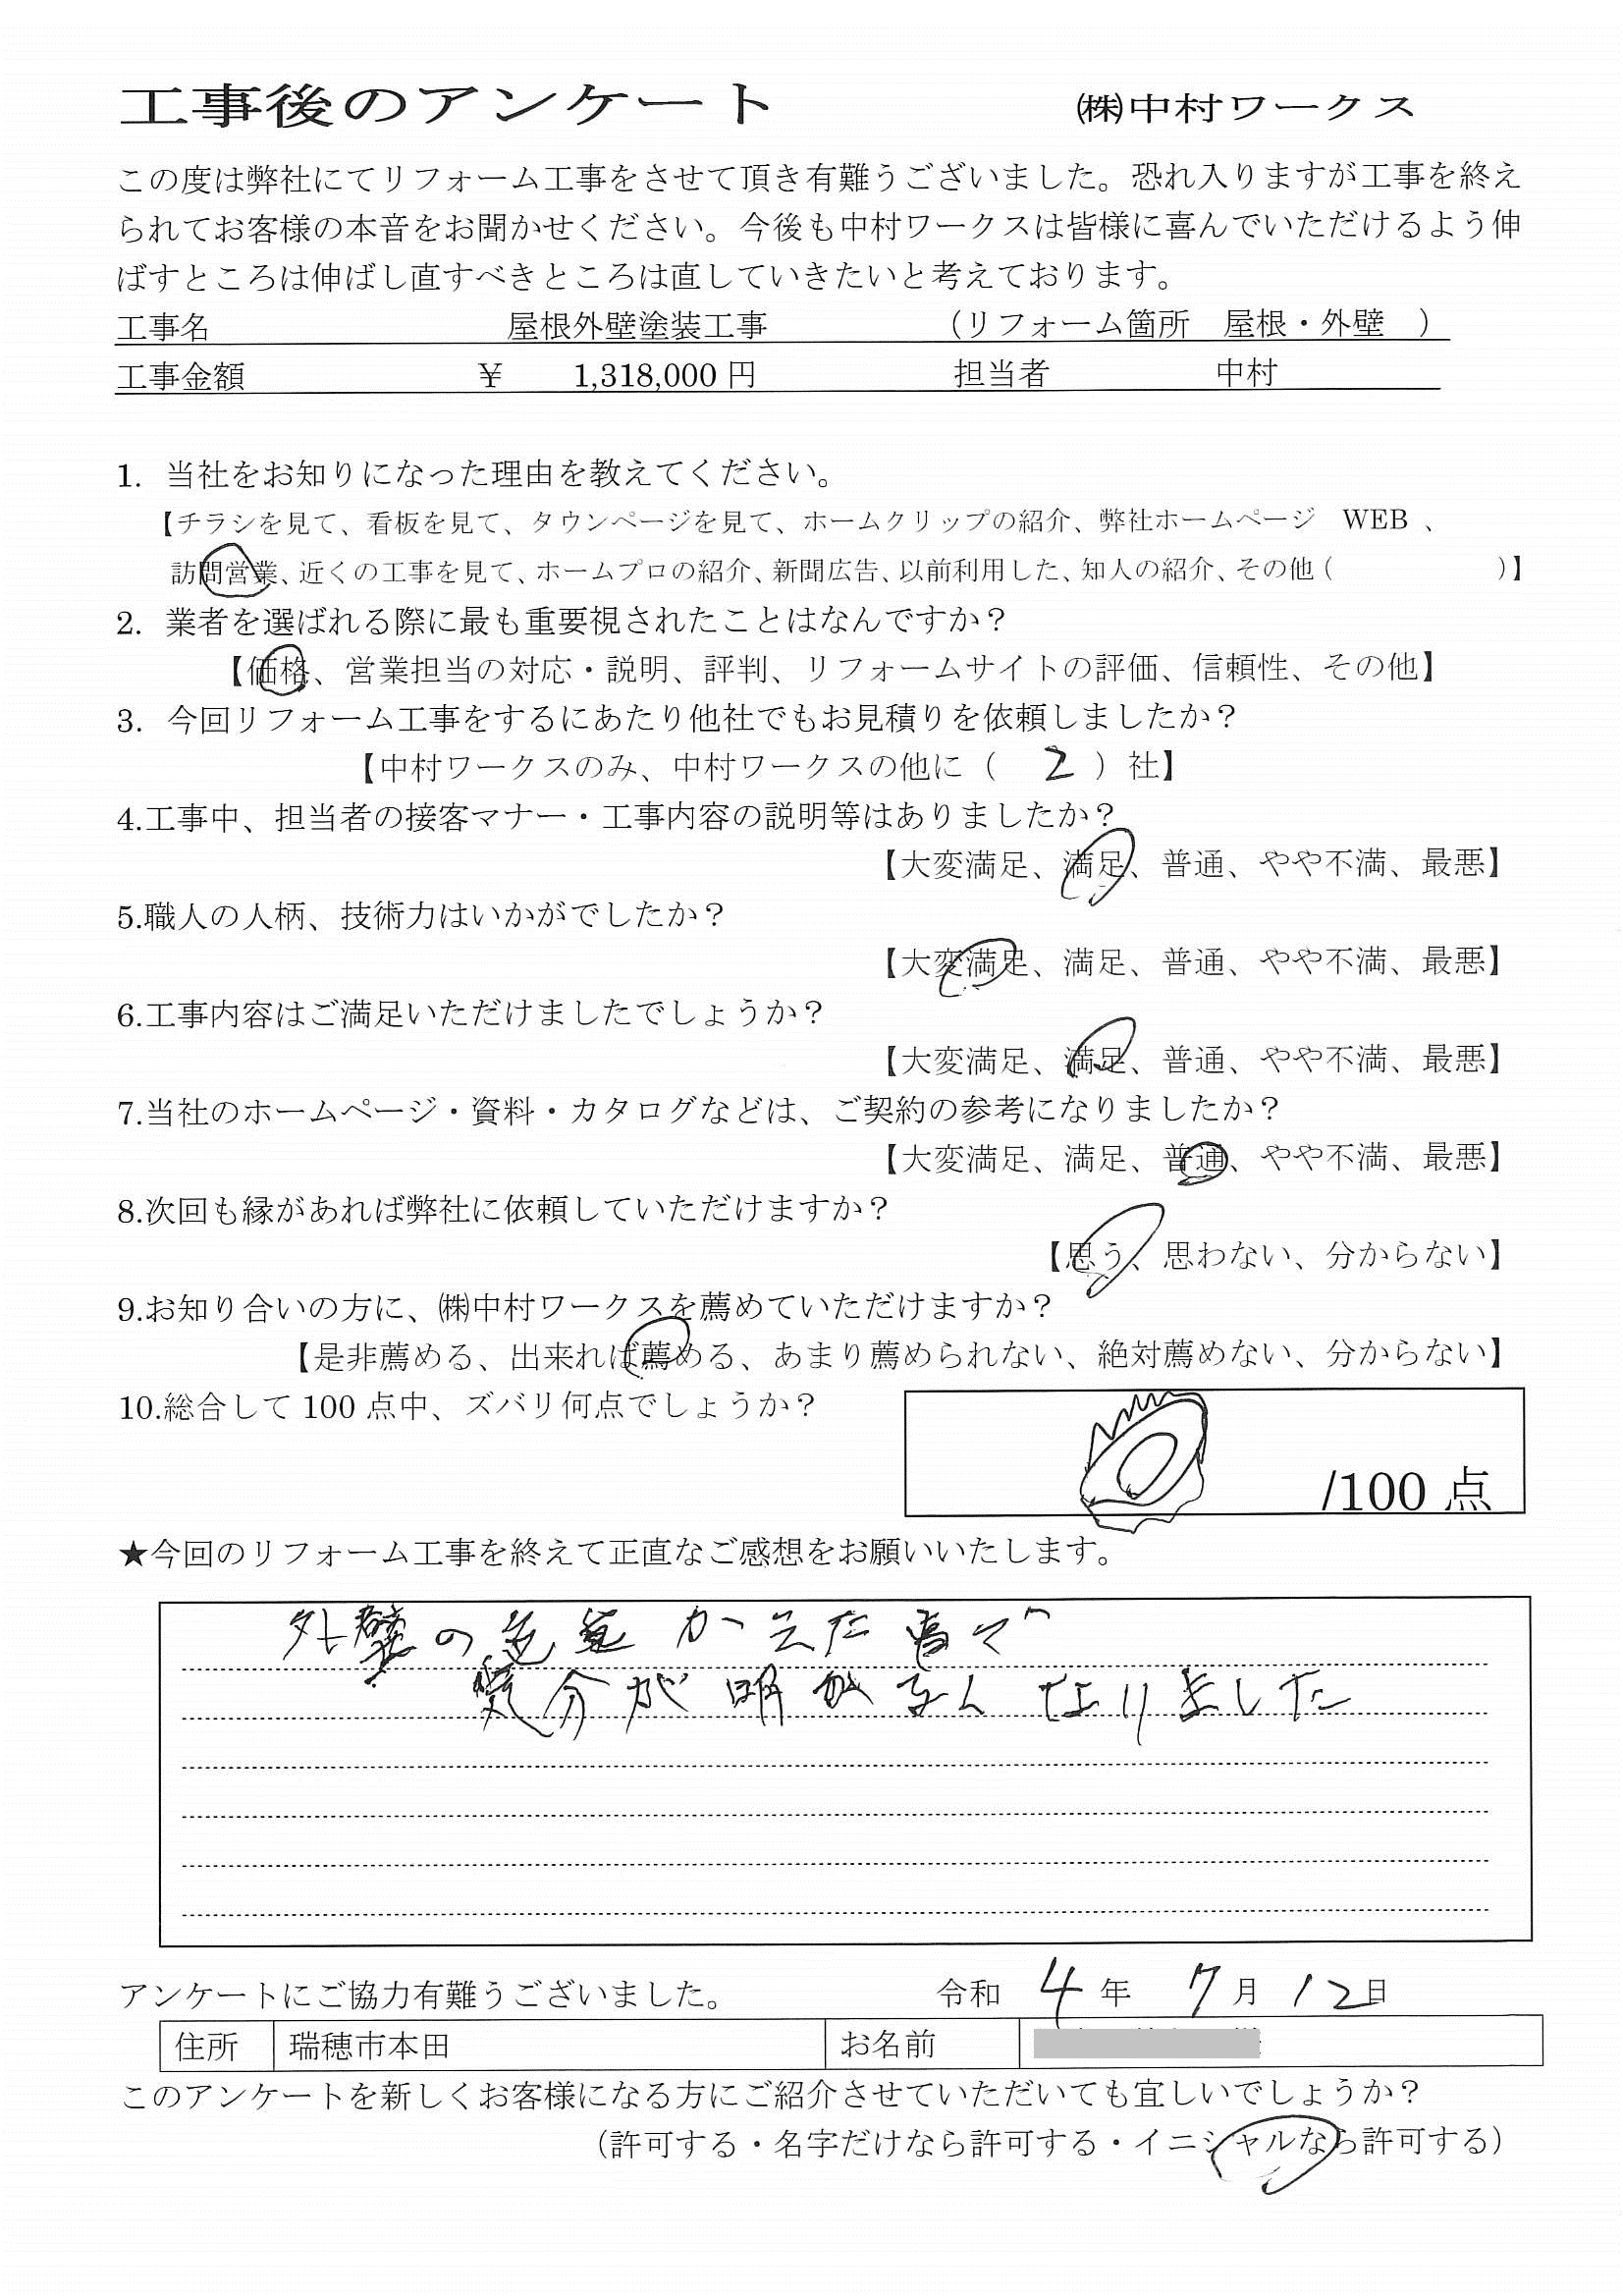 工事後のアンケート ㈱中村ワークス
この度は弊社にてリフォーム工事をさせて頂き有難うございました。恐れ入りますが工事を終え
られてお客様の本音をお聞かせください。今後も中村ワークスは皆様に喜んでいただけるよう伸
ばすところは伸ばし直すべきところは直していきたいと考えております。
工事名 屋根外壁塗装工事 （リフォーム箇所 屋根・外壁 ）
工事金額 ￥ 1,318,000 円 担当者 中村
1. 当社をお知りになった理由を教えてください。
【チラシを見て、看板を見て、タウンページを見て、ホームクリップの紹介、弊社ホームページ WEB 、
訪問営業、近くの工事を見て、ホームプロの紹介、新聞広告、以前利用した、知人の紹介、その他（ ）】
2. 業者を選ばれる際に最も重要視されたことはなんですか？
【価格、営業担当の対応・説明、評判、リフォームサイトの評価、信頼性、その他】
3. 今回リフォーム工事をするにあたり他社でもお見積りを依頼しましたか？
【中村ワークスのみ、中村ワークスの他に（ 2 ）社】
4.工事中、担当者の接客マナー・工事内容の説明等はありましたか？
【大変満足、満足、普通、やや不満、最悪】
5.職人の人柄、技術力はいかがでしたか？
【大変満足、満足、普通、やや不満、最悪】
6.工事内容はご満足いただけましたでしょうか？
【大変満足、満足、普通、やや不満、最悪】
7.当社のホームページ・資料・カタログなどは、ご契約の参考になりましたか？
【大変満足、満足、普通、やや不満、最悪】
8.次回も縁があれば弊社に依頼していただけますか？
【思う、思わない、分からない】
9.お知り合いの方に、㈱中村ワークスを薦めていただけますか？
【是非薦める、出来れば薦める、あまり薦められない、絶対薦めない、分からない】
10.総合して 100 点中、ズバリ何点でしょうか？
/100 点
★今回のリフォーム工事を終えて正直なご感想をお願いいたします。
外壁の色 かえた
気分が明かるくなりました
アンケートにご協力有難うございました。 令和 4 年 7 月 12 日
住所 瑞穂市本田 お名前
このアンケートを新しくお客様になる方にご紹介させていただいても宜しいでしょうか？
（許可する・名字だけなら許可する・イニシャルなら許可する）